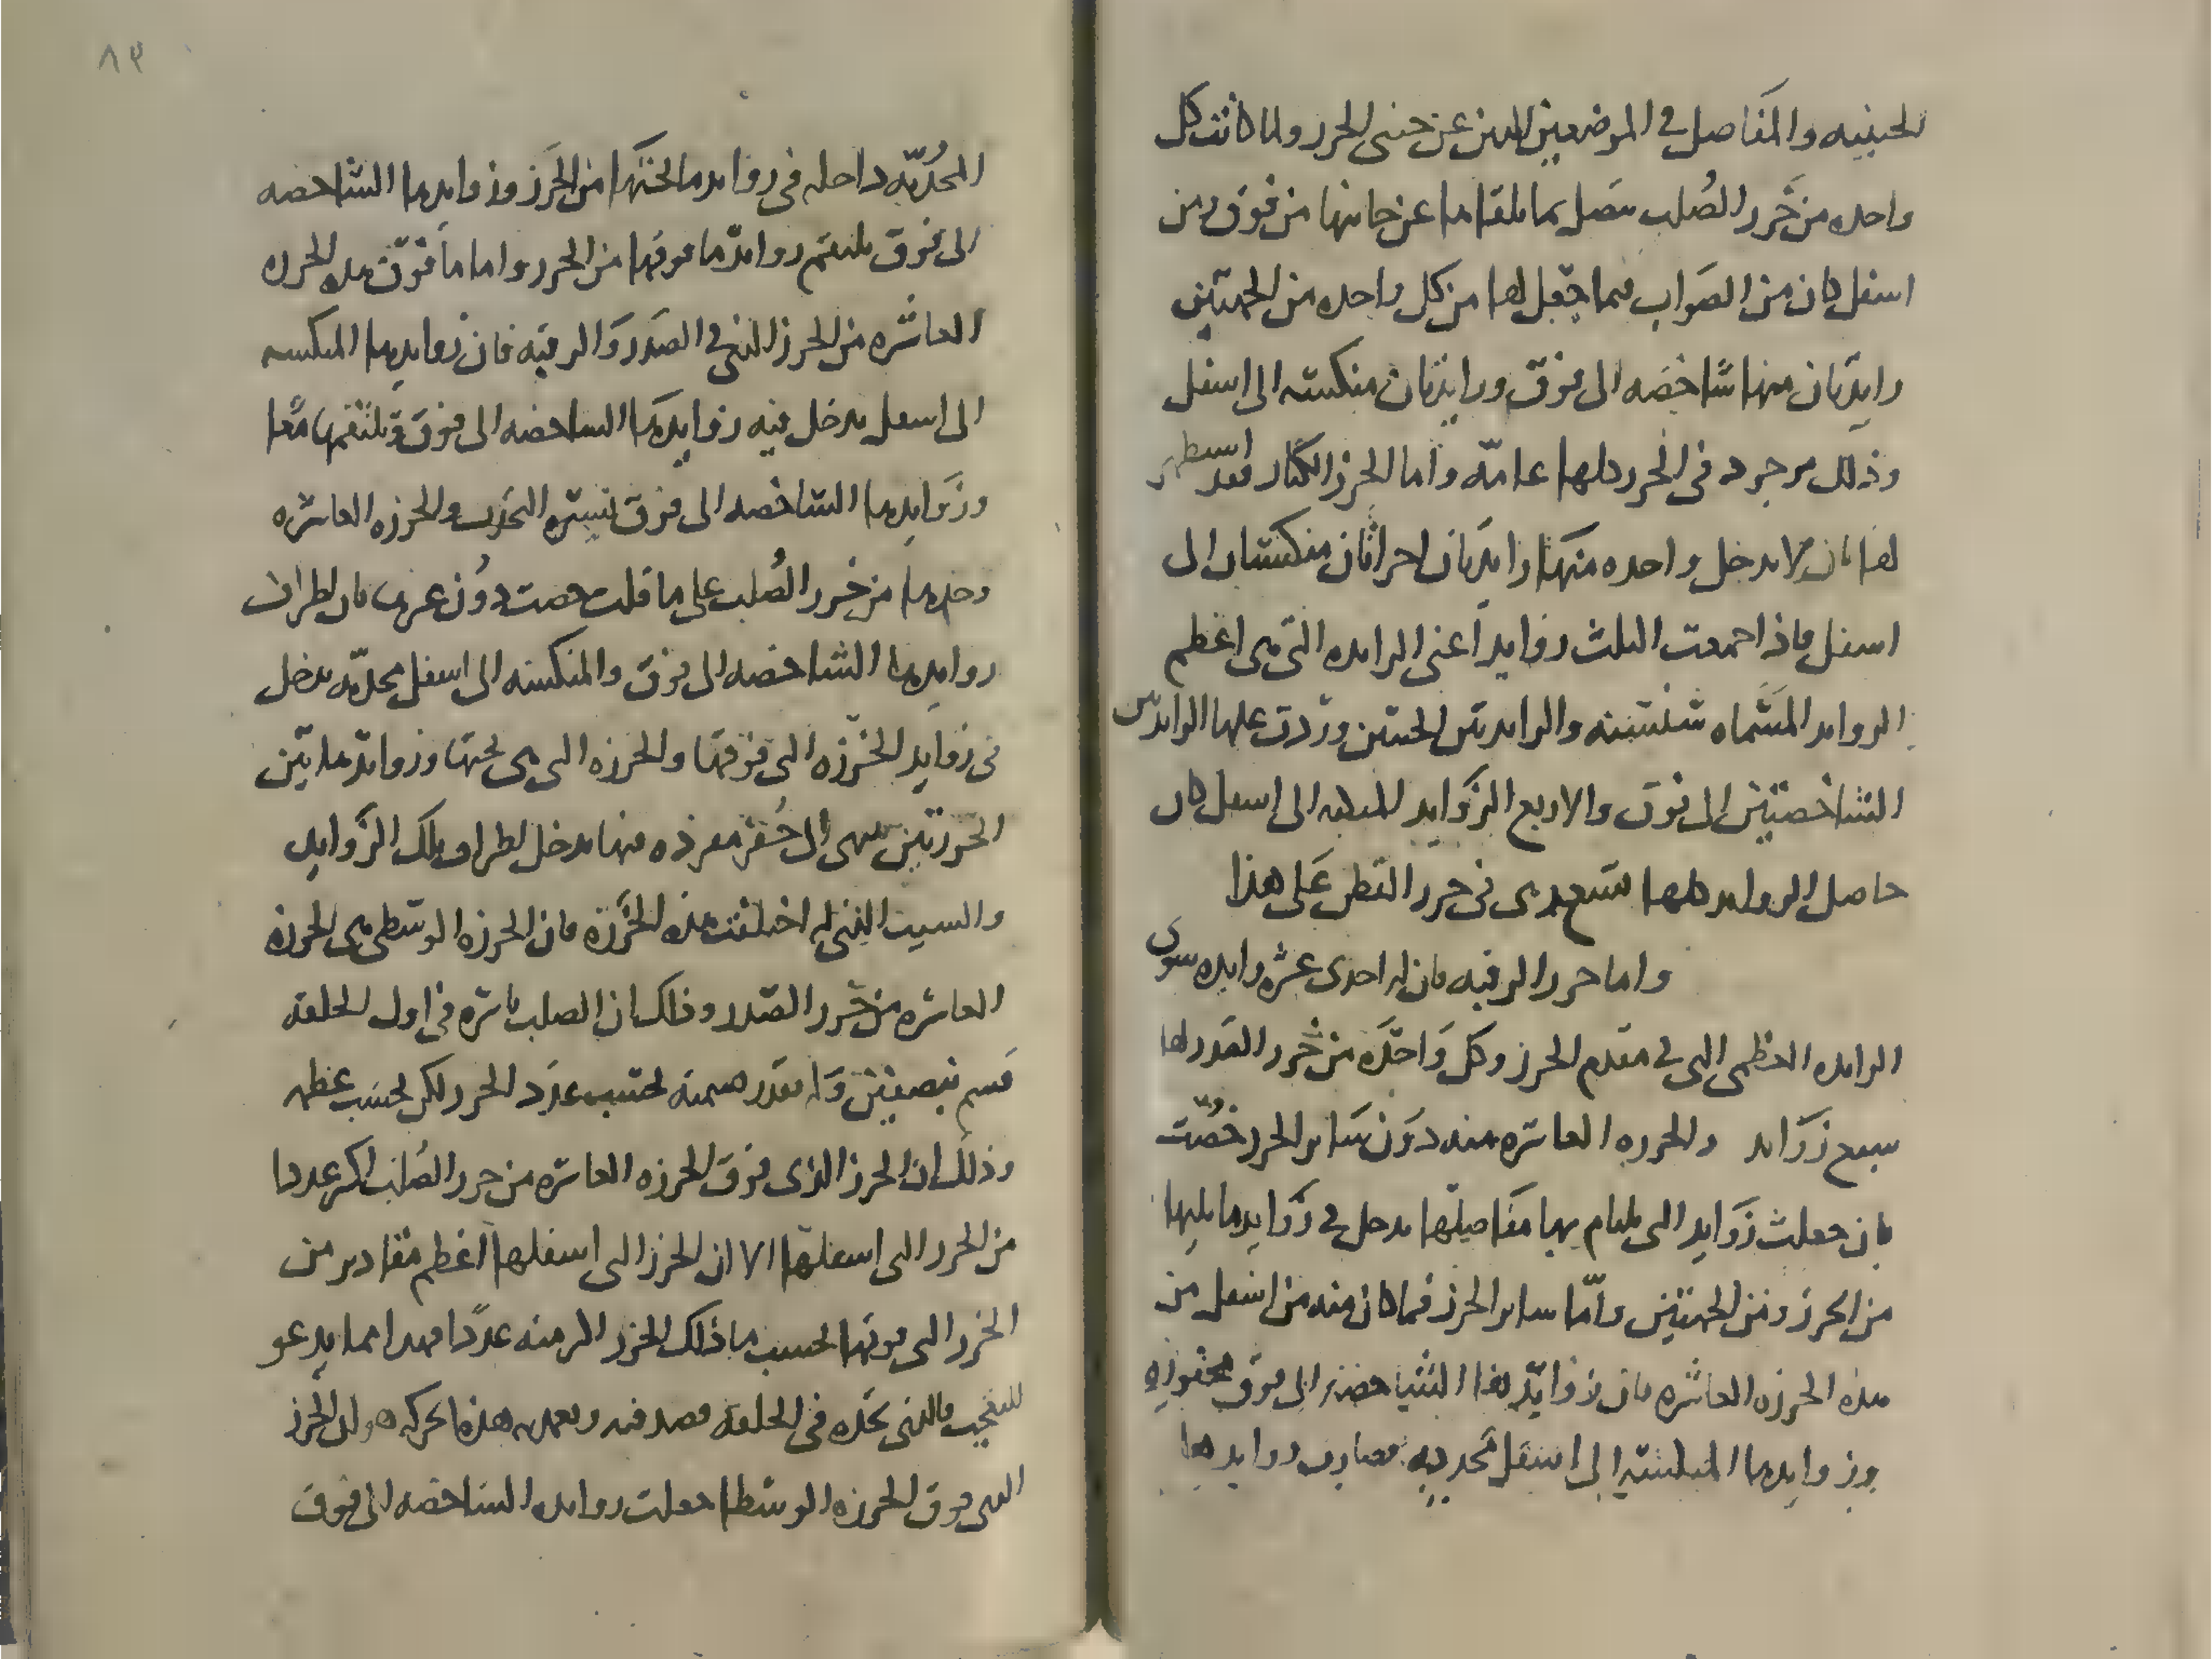 الجنبيه والمفاصل فى الموضعين اللذين عن جنبى الخرز ولما كانت كل
واحده من خرز الصُلب متصل بما يلقاها عن جانبها من فوق ومن
اسفل كان من الصواب فيما جعل لها من كل واحده من الجهتين
زايدتان منها شاخصه الى فوق وزايدتان منكسه الى اسفل
وذلك موجود فى الخرز كلها عامّه واما الخرز الكبار فقد استظهر
لها بان لا يدخل واحده منها زايدتان اخراتان منكستان الى
اسفل فاذا اجتمعت الثلث زوايد اعنى الزايده التى هى اعظم
الزوايد المسَماه سنسنه والزايدتين الجنبتين وزدت عليها الزايدتين
الشاخصتين الى فوق والاربع الزوايد المنكسه الى اسفل كان
حاصل الزوايد كلها تسع هى فى خرز القطن على هذا
واما خرز الرقبه فان له احدى عشره زايده سوى
الزايده العظمى التى فى مقدم الخرز وكل واحدَه من خرز الصَدر لها
سبع زَوَايد والخرزه العاشره منه دوَن سَاير الخرز خُصّت
بان جعلت زَوَايد التى يلتام بها مفاصلها يدخل فى زَوَايد ما يليها
من الخرز ومن الجهتين وامّا ساير الخرز فما كان منه من اسفل من
هذه الخرزه العاشره فان زوايدها الشاخصه الى فوق محفوره
وزوايدها المنكسه الى اسفل محدبه فصارت زوايدها
٨٣
المحُدبّه داخله فى زوايد ما تحتها من الخَرز وزوايدها الشاخصه
الى فوق يلتقم زوايد ما فوقها من الخرز واما ما فوق هذه الخرزه
العاشره من الخرز الذى فى الصَدر وَالرقبه فان زوايدها المنكسه
الى اسفل يدخل فيه زوايدها الشاخصه الى فوق وَيلتقمها معا
وزوايدها الشاخصه الى فوق تشبه التحديب والخرزه العاشره
وحدها من خرز الصُلب على ما قلت خصت دوُن غيرها بان اطراف
زوايدها الشاخصه الى فوق والمنكسه الى اسفل محدبّه يدخل
فى زوايد الخرَزه التى فوقها والخرزه التى هى تحتها وزوايد هاتين
الخرزتين ينتهى الى حُفر مقعره منها يدخل اطراف تلك الزوايد
والسبب الذى له اختلفت هذه الخَرَزة فان الخرزه الوسطى هى الخرزه
العاشره من خرز الصَدر وذلك ان الصلب باسره فى اول الخلقه
قسم بنصفين وَلم يقدر قسمته بحسب عدَد الخرز لكن بحسب عظمه
وذلك ان الخرز الذى فوق الخرزه العاشره من خرز الصُلب اكثر عددا
من الخرز التى اسفلها الا ان الخرز التى اسفلها اعظم مقادير من
الخرز التى فوقها بحسب ما ذلك الخرز اكثر منه عددًا فهذا مما يدعو
للتعجب فالذى تجده فى الخلقه قصد فيه وتعمد هذه الحركه هو ان الخرز
التى فوق الخرزه الوسطا جعلت زوايده الشاخصه الى فوق